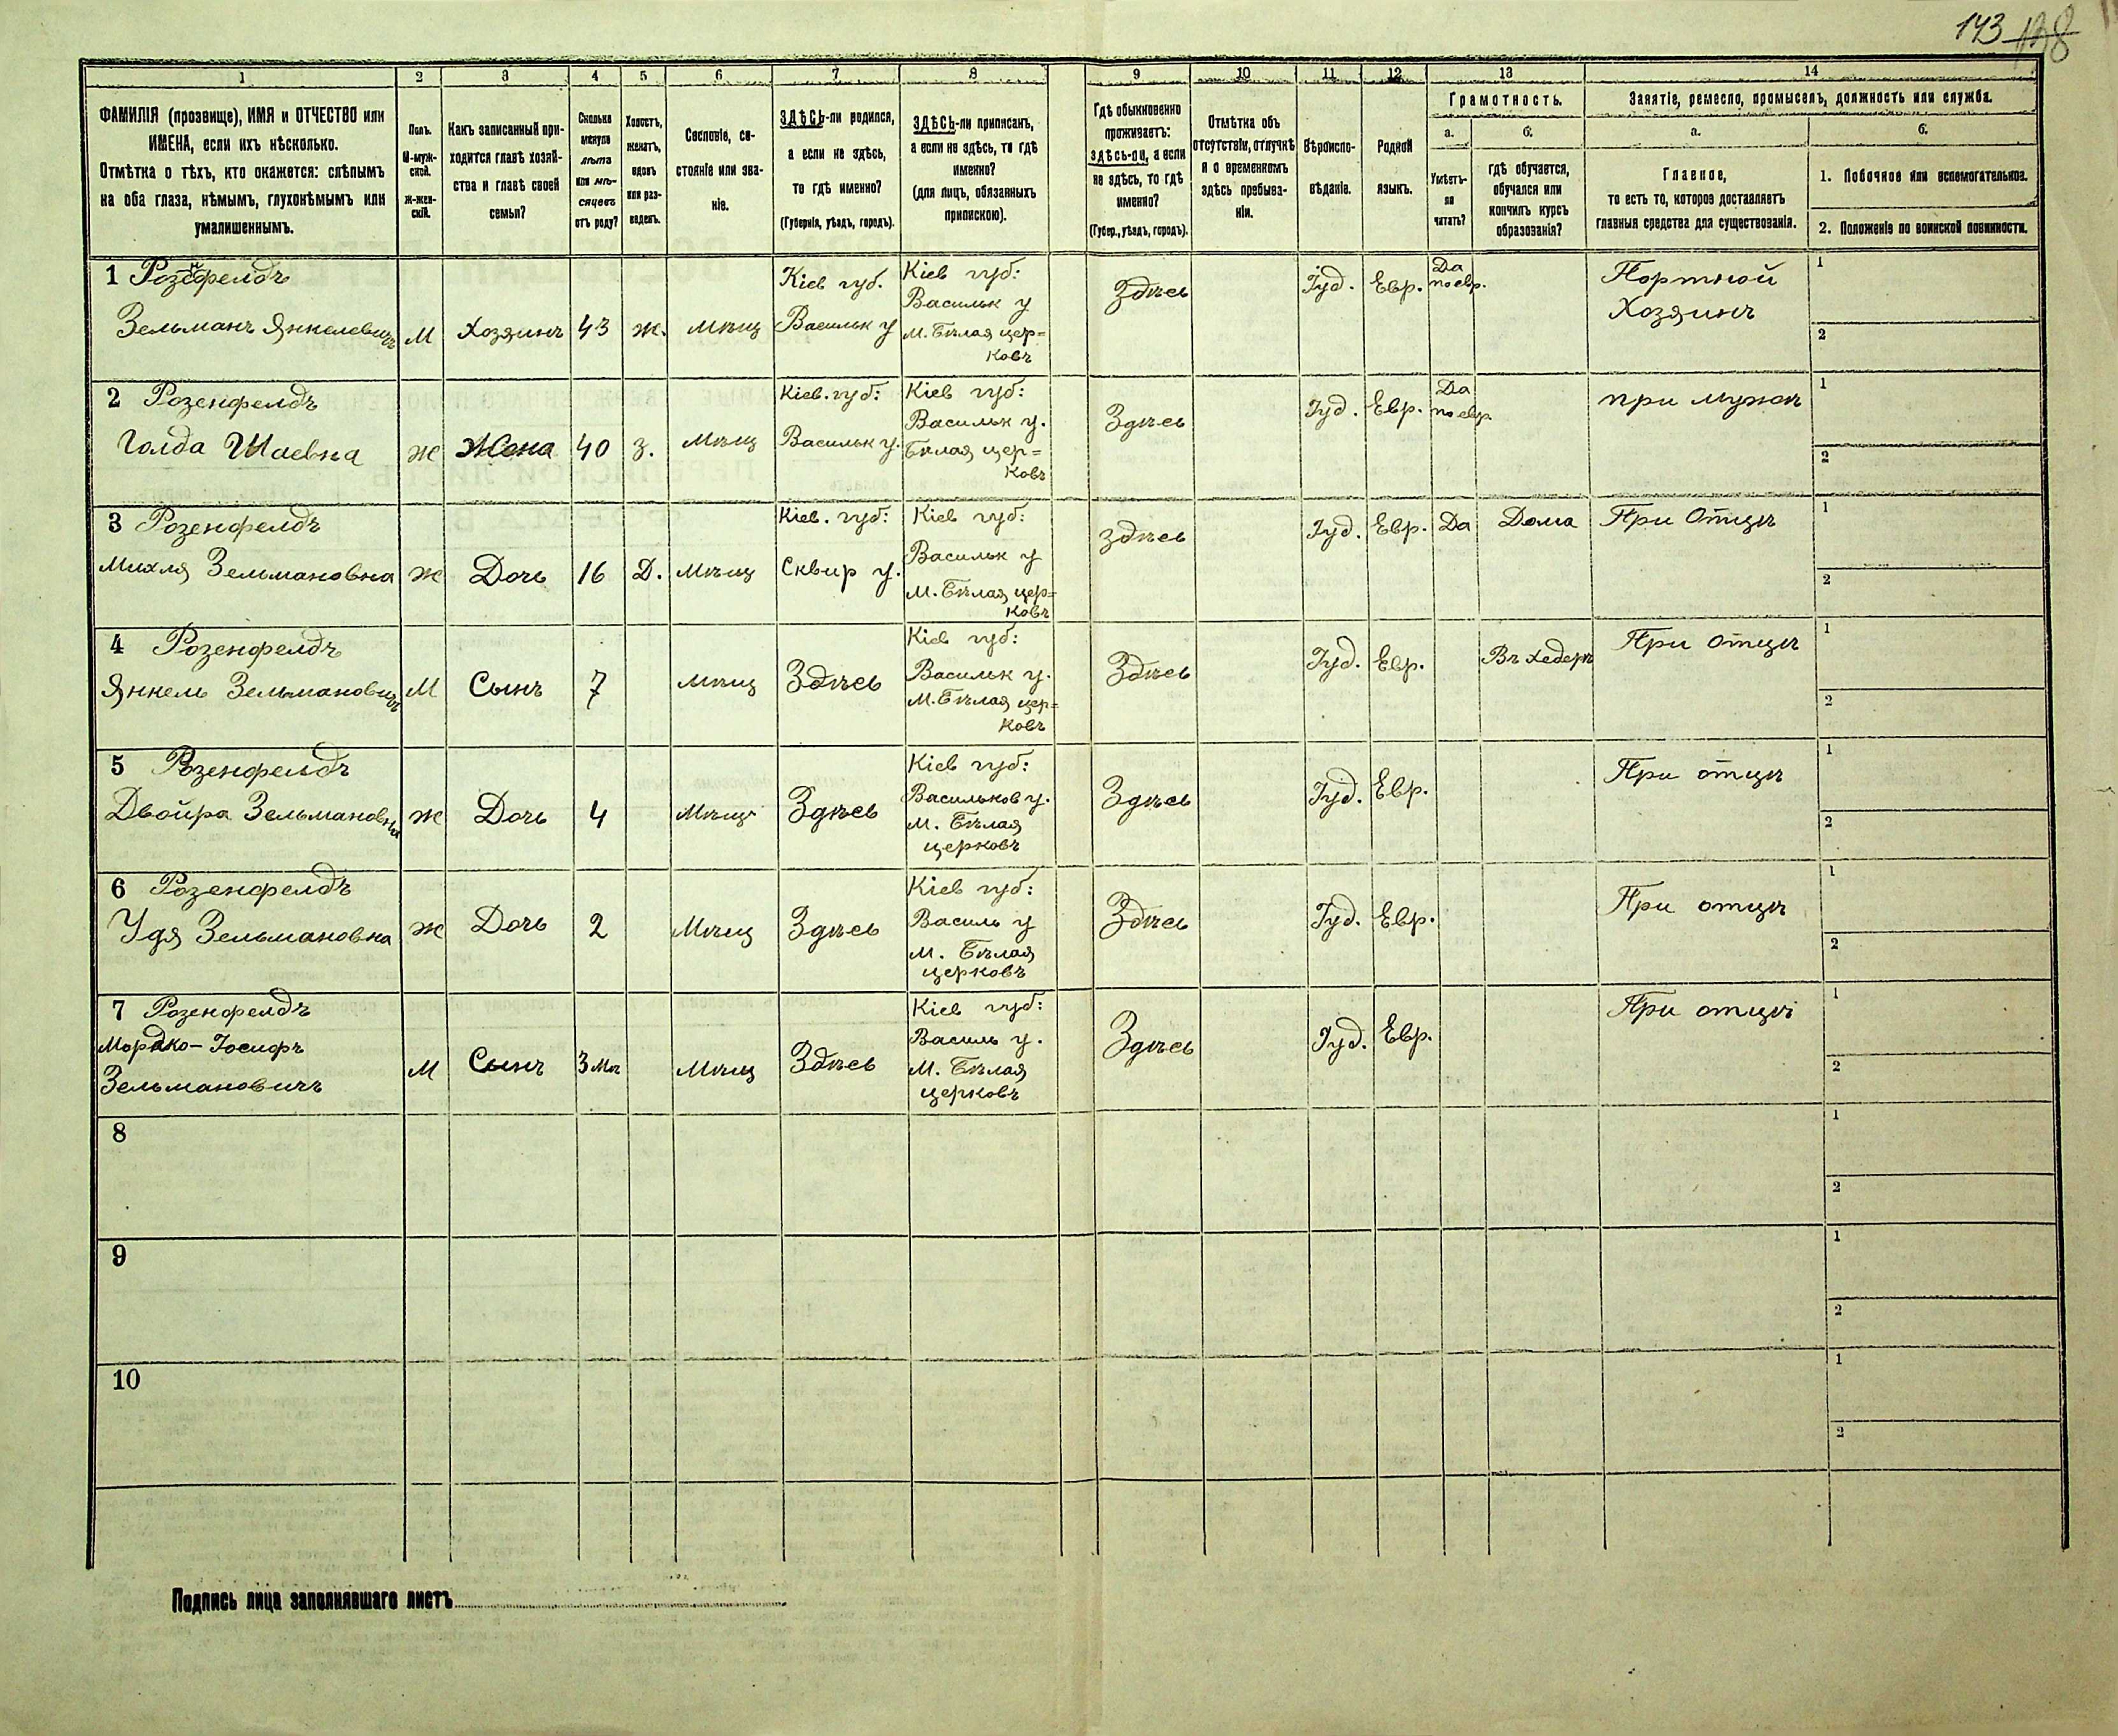 143 138
1 2 3 4 5 6 7 8 9 10 11 12 13 14
ФАМИЛІЯ (прозвище), ИМЯ и ОТЧЕСТВО или
ИМЕНА, если ихъ нѣсколько.
Отмѣтка о тѣхъ, кто окажется: слѣпымъ
на оба глаза, нѣмымъ, глухонѣмымъ или
умалишеннымъ.
Полъ.
М-муж-
ской.
Ж-жен-
скій.
Какъ записанный при-
ходится главѣ хозяй-
ства и главѣ своей
семьи?
Сколько
минуло
лѣтъ
или мѣ-
сяцевъ
отъ роду?
Холостъ,
женатъ,
вдовъ
или раз-
веденъ.
Сословіе, со-
стояніе или зва-
ніе.
ЗДѢСЬ-ли родился,
а если не здѣсь,
то гдѣ именно?
(Губернія, уѣздъ, городъ).
ЗДѢСЬ-ли приписанъ,
а если не здѣсь, то гдѣ
именно?
(для лицъ, обязанныхъ
припискою).
Гдѣ обыкновенно
проживаетъ:
здѣсь-ли, а если
не здѣсь, то гдѣ
именно?
(Губер., уѣздъ, городъ).
Отмѣтка объ
отсутствіи, отлучкѣ
и о временномъ
здѣсь пребыва-
ніи.
Вѣроиспо-
вѣданіе.
Родной
языкъ.
Грамотность.
а.
Умѣетъ-
ли
читать?
б.
гдѣ обучается,
обучался или
кончилъ курсъ
образованія?
Занятіе, ремесло, промыселъ, должность или служба.
а.
Главное,
то есть то, которое доставляетъ
главныя средства для существованія.
б.
1. Побочное или вспомогательное.
2. Положеніе по воинской повинности.
1 Розенфелдъ
Зельманъ Янкелевичъ
М
Хозяинъ
43
ж.
мѣщ
Кіев губ.
Васильк у
Кіев губ:
Васильк у
М. Бѣлая цер=
ковъ
Здѣсь
Іуд.
Евр.
Да
по евр.
Портной
Хозяинъ
1
2
2 Розенфелдъ
Голда Шаевна
Ж
Жена
40
з.
мѣщ
Кіев. губ:
Васильк у.
Кіев губ:
Васильк у.
Бѣлая цер=
ковъ
Здѣсь
Іуд.
Евр.
Да
по евр.
при мужѣ
1
2
3 Розенфелдъ
Михля Зельмановна
Ж
Дочь
16
Д.
мѣщ
Кіев. губ:
Сквир у.
Кіев губ:
Васильк у
М. Бѣлая цер=
ковъ
Здѣсь
Іуд.
Евр.
Да
Дома
При Отцѣ
1
2
4 Розенфелдъ
Янкель Зельмановичъ
М
Сынъ
7
мѣщ
Здѣсь
Кіев губ:
Васильк у.
М. Бѣлая цер=
ковъ
Здѣсь
Іуд.
Евр.
Въ хедерѣ
При отцѣ
1
2
5 Розенфелдъ
Двойра Зельмановна
Ж
Дочь
4
мѣщ
Здѣсь
Кіев губ:
Васильков у.
М. Бѣлая
церковъ
Здѣсь
Іуд.
Евр.
При отцѣ
1
2
6 Розенфелдъ
Удя Зельмановна
Ж
Дочь
2
Мѣщ
Здѣсь
Кіев губ:
Василь у
М. Бѣлая
церковъ
Здѣсь
Іуд.
Евр.
При отцѣ
1
2
7 Розенфелдъ
Мордко-Іосифъ
Зельмановичъ
М
Сынъ
3 мѣ
Мѣщ
Здѣсь
Кіев губ:
Василь у.
М. Бѣлая
церковъ
Здѣсь
Іуд.
Евр.
При отцѣ
1
2
8
1
2
9
1
2
10
1
2
Подпись лица заполнявшаго листъ